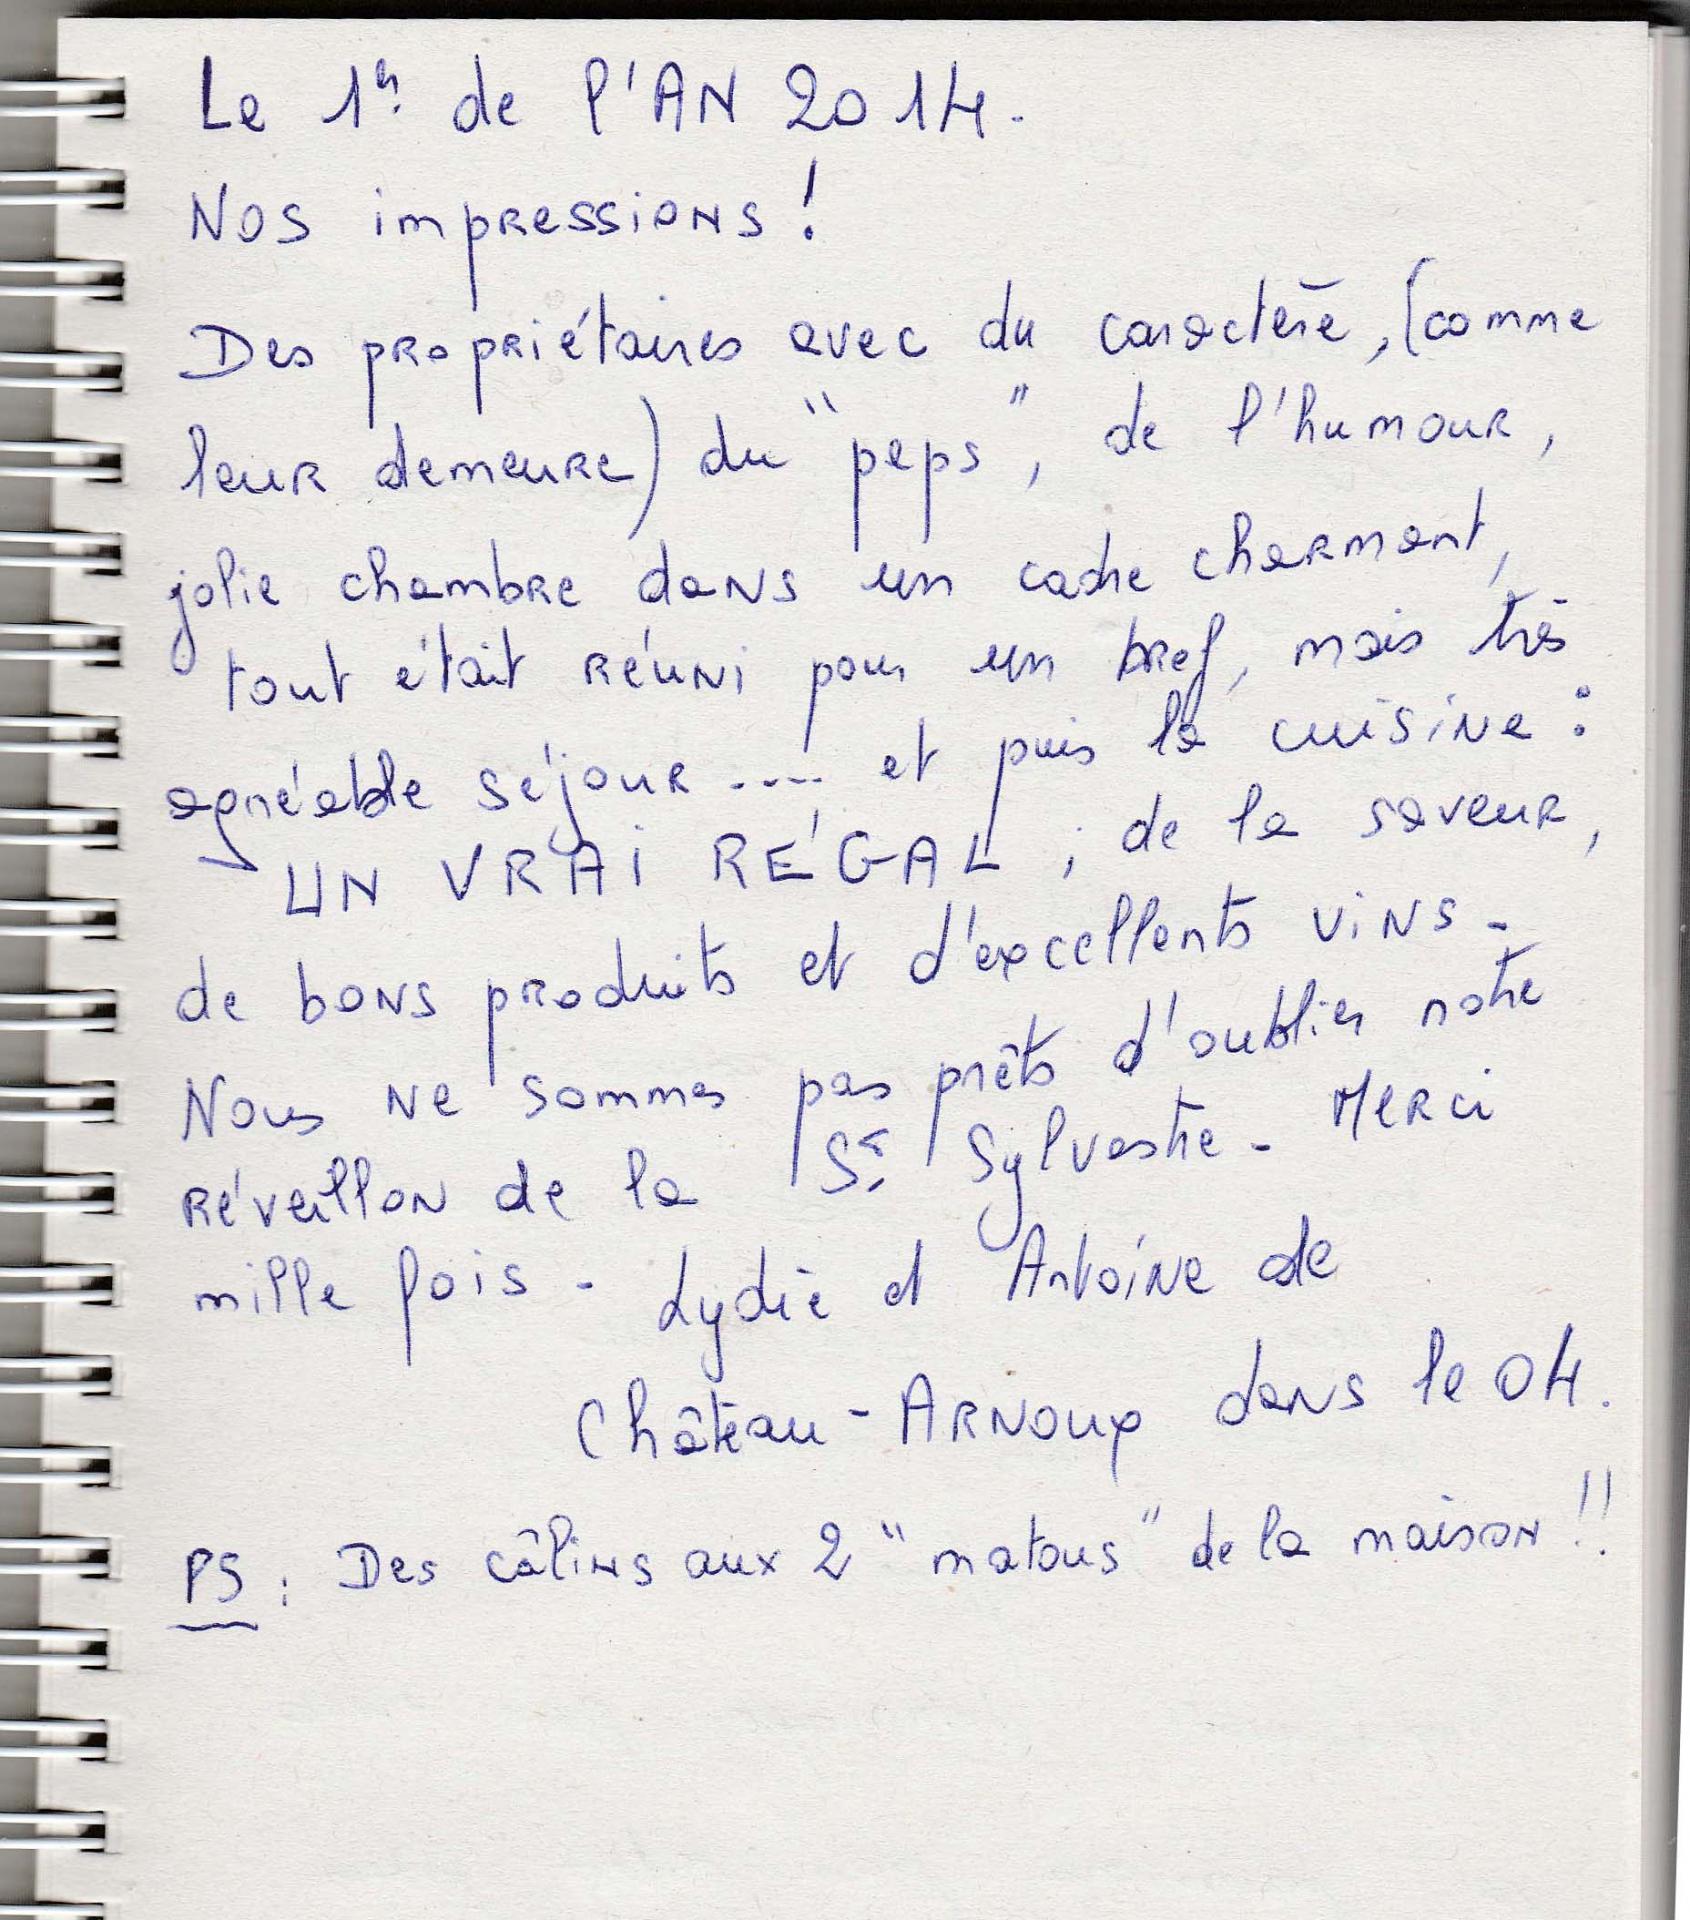 Le 1er de l'AN 2014.
Nos impressions !
Des propriétaires avec du caractère, (comme
leur demeure) du "peps", de l'humour,
jolie chambre dans un cadre charmant,
tout était réuni pour un bref, mais très
agréable séjour .... et puis la cuisine :
UN VRAI RÉGAL ; de la saveur,
de bons produits et d'excellents vins -
Nous ne sommes pas prêts d'oublier notre
réveillon de la St Sylvestre - Merci
mille fois - Lydie et Antoine de
Château-Arnoux dans le 04.
PS : Des câlins aux 2 "matous" de la maison !!